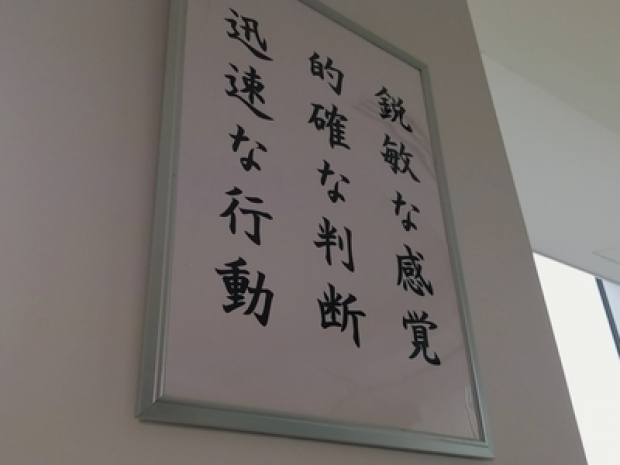 鋭敏な感覚
的確な判断
迅速な行動